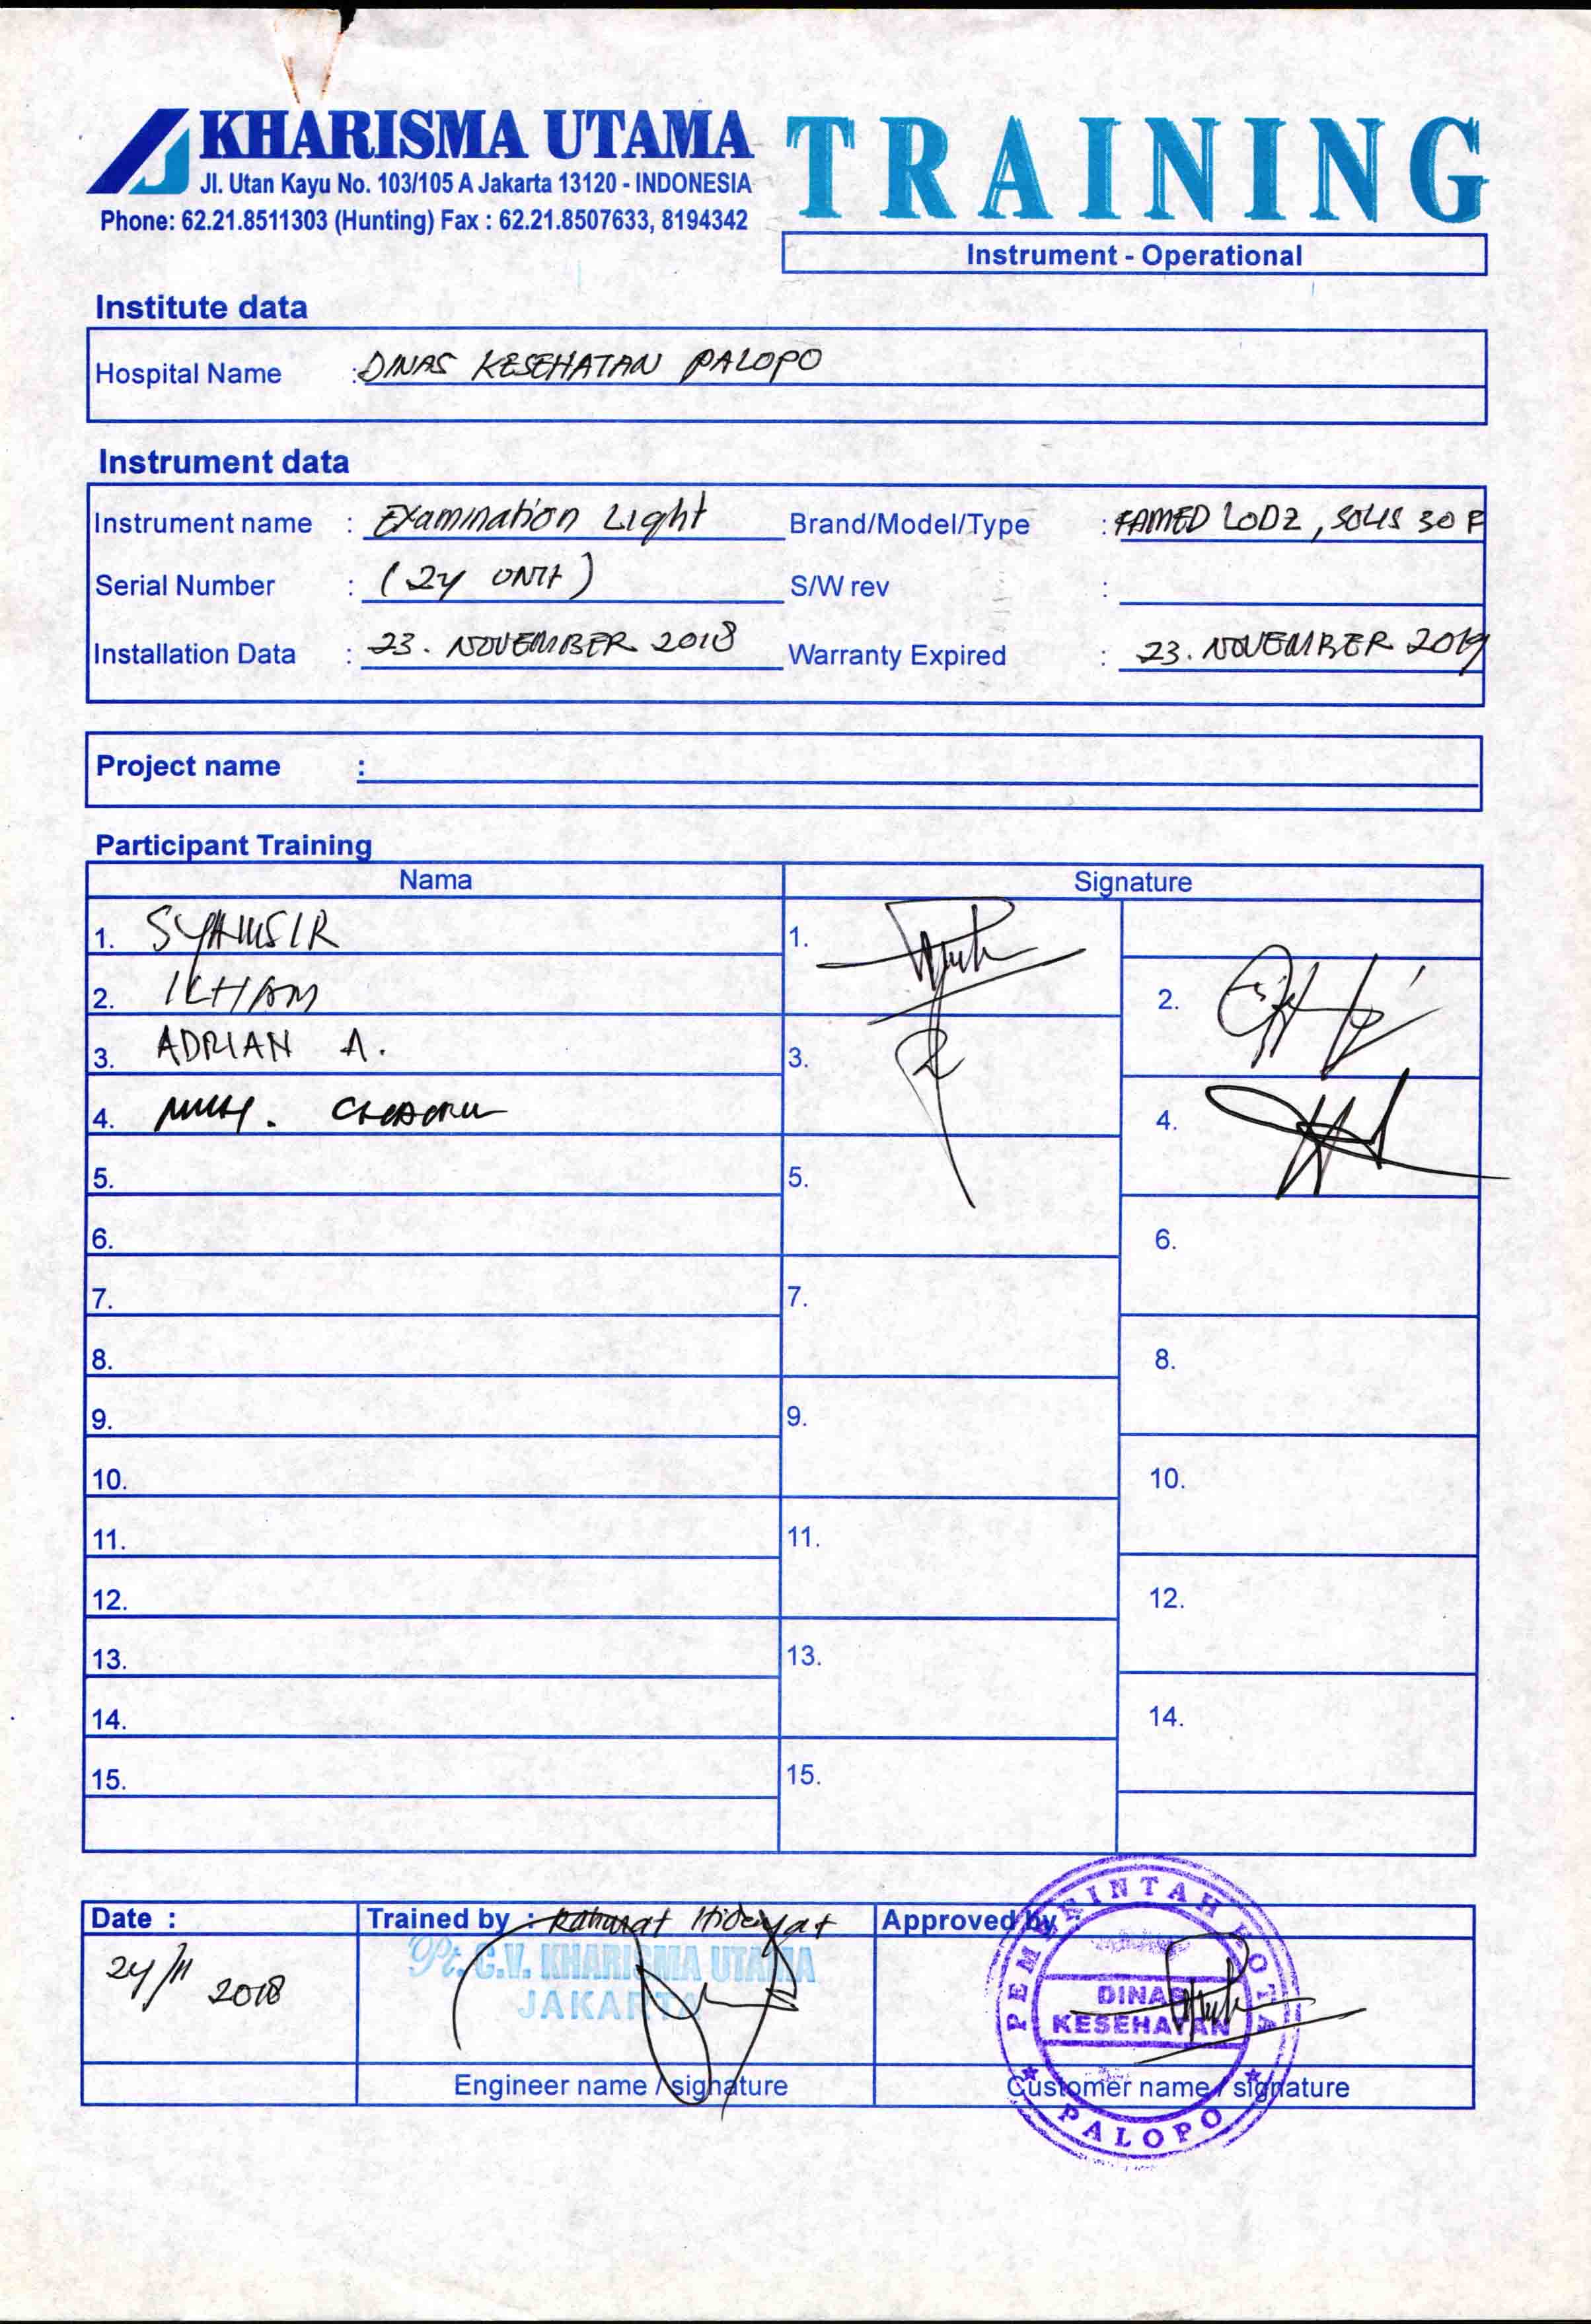 KHARISMA UTAMA
Jl. Utan Kayu No. 103/105 A Jakarta 13120 - INDONESIA
Phone: 62.21.8511303 (Hunting) Fax : 62.21.8507633, 8194342
TRAINING
Instrument - Operational
Institute data
Hospital Name : DINAS KESEHATAN PALOPO
Instrument data
Instrument name : Examination Light Brand/Model/Type : FAMED LODZ, SOLIS 30 F
Serial Number : (24 UNIT) S/W rev :
Installation Data : 23. NOVEMBER 2018 Warranty Expired : 23. NOVEMBER 2019
Project name :
Participant Training
Nama Signature
1. SYAMSIR 1.
2. ILHAM 2.
3. ADRIAN A. 3.
4. MUH. 4.
5. 5.
6. 6.
7. 7.
8. 8.
9. 9.
10. 10.
11. 11.
12. 12.
13. 13.
14. 14.
15. 15.
Date : Trained by : Rahmat Hidayat Approved by :
24/11 2018
Pt. C.V. KHARISMA UTAMA
JAKARTA
PEMERINTAH KOTA
DINAS
KESEHATAN
PALOPO
Engineer name / signature Customer name / signature